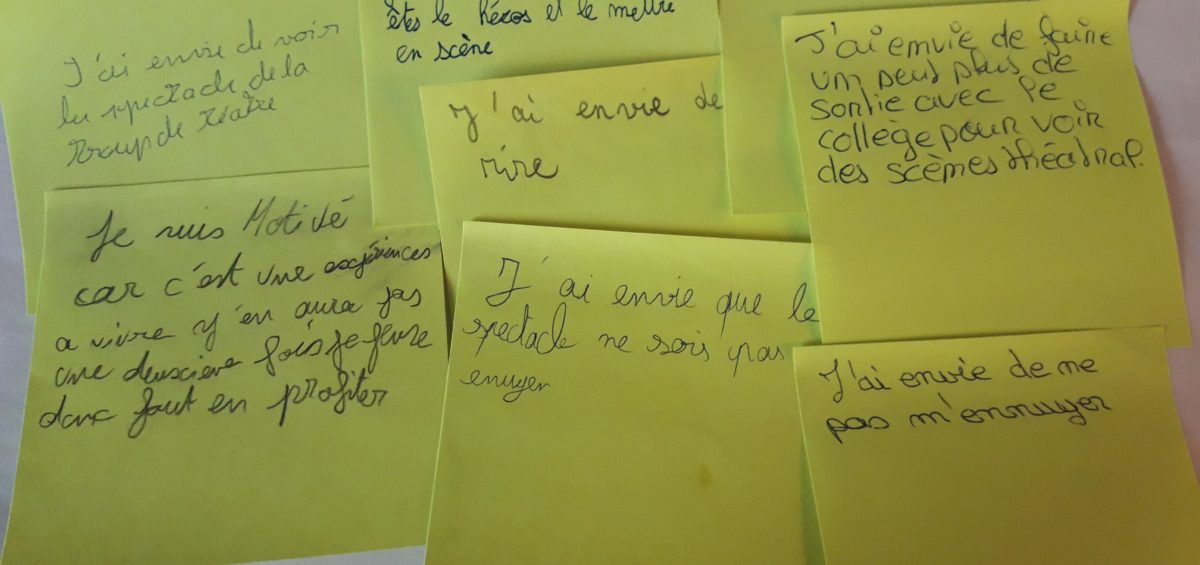 J'ai envie de voir
les spectacle de la
troup de téatre
êtes le héros et le mettre
en scène
J'ai envie de
rire
J'ai emvie de faire
um peus plus de
sortie avec le
collège pour voir
des scèmes théatral.
Je suis Motivé
car c'est une expériences
a vivre y'en aura pas
une deuxième fois je pense
donc faut en profiter
J'ai envie que le
spectacle ne sois pas
enuyer
J'ai envie de me
pas m'ennuyer